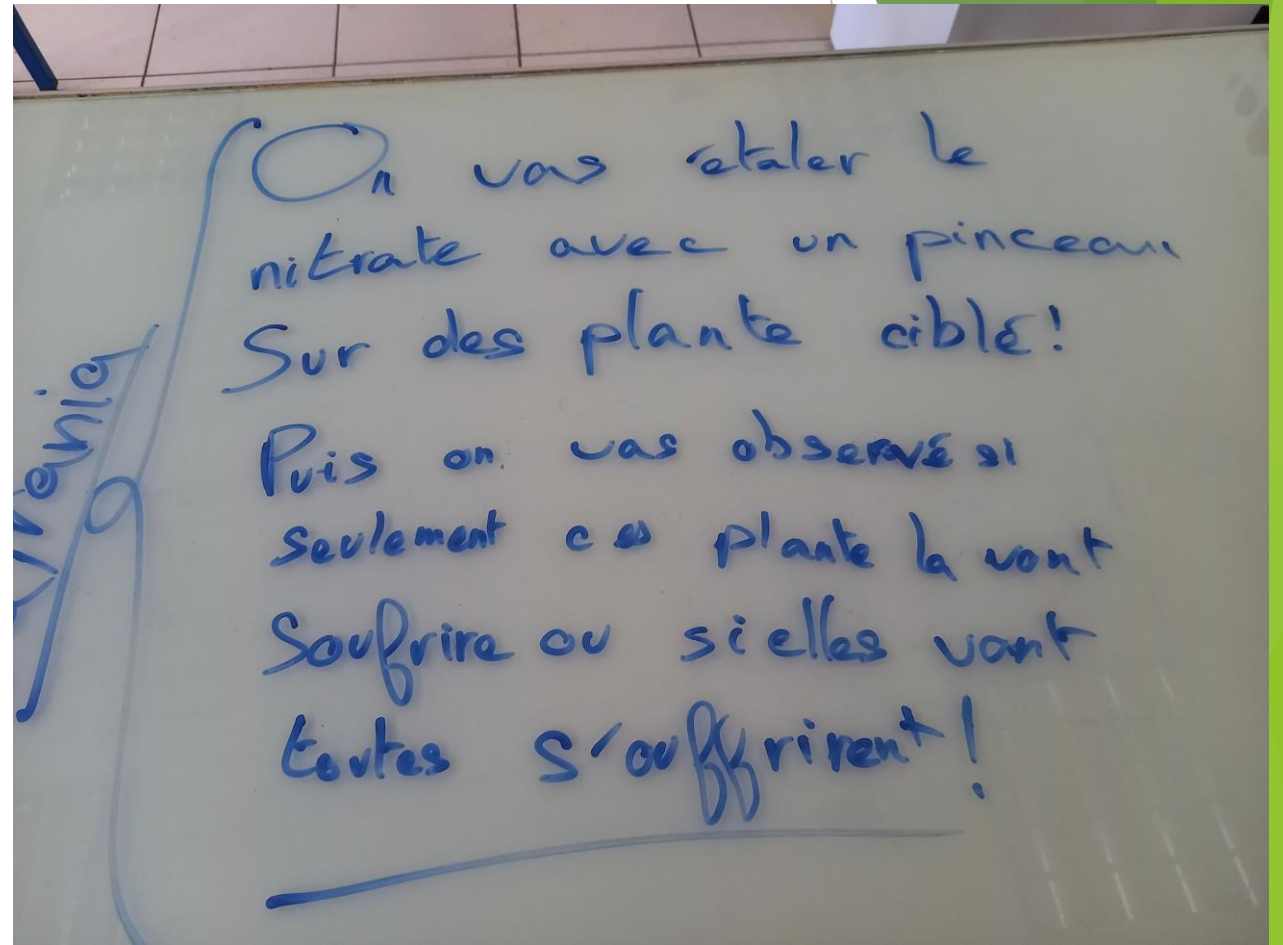 On vas étaler le
nitrate avec un pinceau
Sur des plante ciblé!
Puis on vas observé si
seulement ces plante la vont
Soufrire ou si elles vont
toutes s'ouffrirent!